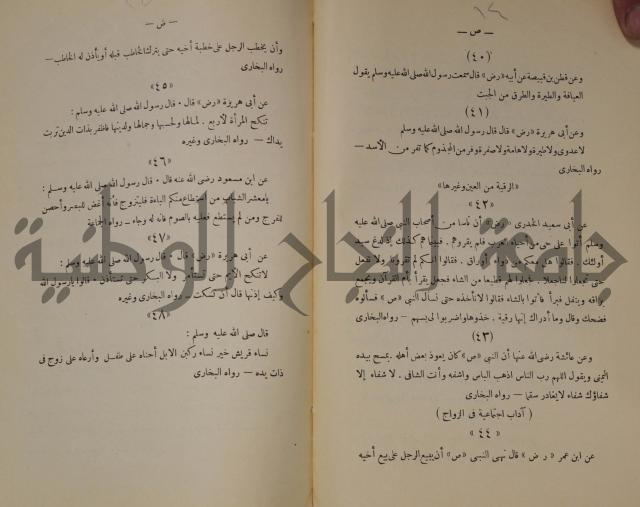 — ص —
«٤٠»
وعن قطن بن قبيصة عن أبيه «رض» قال سمعت رسول الله صلى الله عليه وسلم يقول
العيافة والطيرة والطرق من الجبت
(٤١)
وعن أبى هريرة «رض» قال قال رسول الله صلى الله عليه وسلم
لا عدوى ولا طيرة ولا هامة ولا صفرة وفر من المجذوم كما تفر من الأسد —
رواه البخارى
«الرقية من العين وغيرها»
«٤٢»
عن أبى سعيد الخدرى «رض» أن ناسا من أصحاب النبي صلى الله عليه
وسلم أتوا على حى من أحياء العرب فلم يقروهم . فبينما هم كذلك إذ لدغ سيد
أولئك . فقالوا هل معكم من دواء أو راق . فقالوا انكم لم تقرونا ولا نفعل
حتى تجعلوا لنا جعلا . فجعلوا لهم قطيعا من الشاء فجعل يقرأ بأم القرآن ويجمع
بزاقه ويتفل فبرأ فأتوا بالشاء فقالوا لا نأخذه حتى نسأل النبى «ص» فسألوه
فضحك وقال وما أدراك إنها رقية . خذوها واضربوا لى بسهم — رواه البخارى
(٤٣)
وعن عائشة رضى الله عنها أن النبى «ص» كان يعوذ بعض أهله بمسح بيده
اليمنى ويقول اللهم رب الناس اذهب الباس واشفه وأنت الشافى . لا شفاء إلا
شفاؤك شفاء لا يغادر سقما — رواه البخارى
( آداب اجتماعية فى الزواج )
«٤٤»
عن ابن عمر «رض» قال نهى النبى «ص» أن يبيع الرجل على بيع أخيه
— ض —
وأن يخطب الرجل على خطبة أخيه حتى يترك الخاطب قبله أو يأذن له الخاطب —
رواه البخارى
«٤٥»
عن أبى هريرة «رض» قال • قال رسول الله صلى الله عليه وسلم :
تنكح المرأة لأربع . لمالها ولحسبها وجمالها ولدينها فاظفر بذات الدين تربت
يداك — رواه البخارى وغيره
«٤٦»
عن ابن مسعود رضى الله عنه قال • قال رسول الله صلى الله عليه وسلم :
يا معشر الشباب من استطاع منكم الباءة فليتزوج فأنه أغض للبصر وأحصن
للفرج ومن لم يستطع فعليه بالصوم فانه له وجاء — رواه الجماعة
«٤٧»
عن أبى هريرة «رض» قال • قال رسول الله صلى الله عليه وسلم :
لا تنكح الأيم حتى تستأمر ولا البكر حتى تستأذن • قالوا يا رسول الله
وكيف إذنها قال أن تسكت — رواه البخارى وغيره
«٤٨»
قال صلى الله عليه وسلم :
نساء قريش خير نساء ركبن الابل أحناه على طفل وأرعاه على زوج فى
ذات يده — رواه البخارى
جامعة النجاح الوطنية